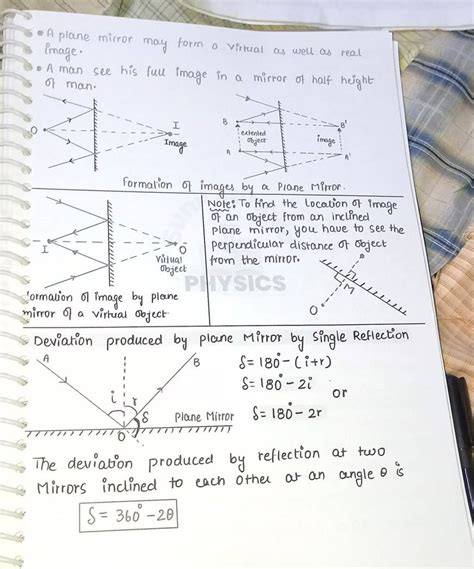 • A plane mirror may form a virtual as well as real
image.
• A man see his full image in a mirror of half height
of man.
O
I
Image
B
B'
extented
object
image
A
A'
Formation of images by a Plane Mirror.
I
O
Virtual
object
Formation of image by plane
mirror of a virtual object
Note: To find the location of image
of an object from an inclined
plane mirror, you have to see the
perpendicular distance of object
from the mirror.
I
M
O
PHYSICS
Deviation produced by plane Mirror by Single Reflection
A
B
i
r
δ
O
Plane Mirror
δ = 180° - (i+r)
δ = 180° - 2i
or
δ = 180° - 2r
The deviation produced by reflection at two
Mirrors inclined to each other at an angle θ is
δ = 360° - 2θ